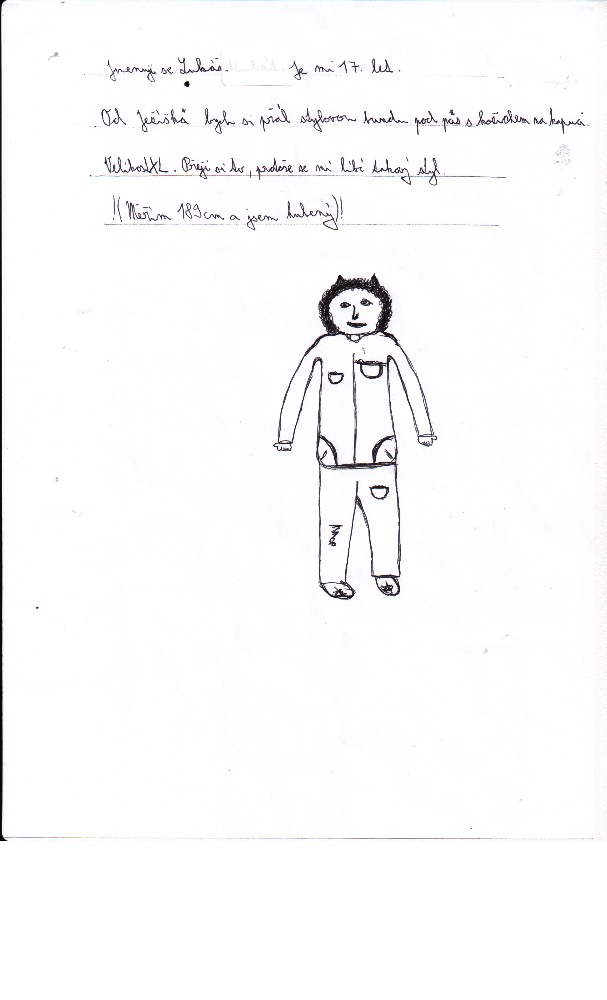 Jmenuji se Lukáš. Je mi 17. let.
Od Ježíška bych si přál stylovou bundu pod pás s kožichem na kapuci.
Velikost XL. Přeji si to, protože se mi líbí takový styl.
!(Měřím 189cm a jsem hubený)!